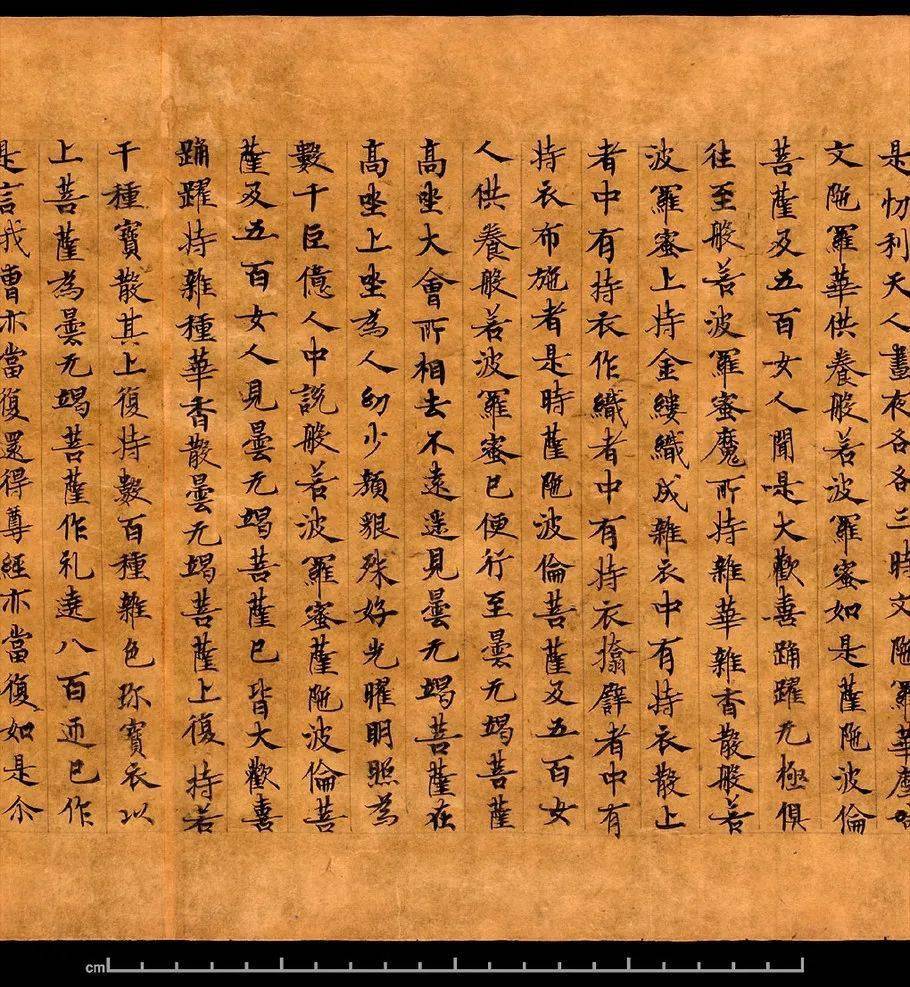 是忉利天人晝夜各各三時文陁羅華摩
文陁羅華供養般若波羅蜜如是薩陁波倫
菩薩及五百女人聞是大歡喜踊躍无極俱
往至般若波羅蜜魔所持雜華雜香散般若
波羅蜜上持金縷織成雜衣中有持衣散上
者中有持衣作織者中有持衣者中有
持衣布施者是時薩陁波倫菩薩及五百女
人供養般若波羅蜜已便行至曇无竭菩薩
高坐大會所相去不遠遥見曇无竭菩薩在
高坐上坐為人幼少顏貌殊好光曜明照為
數千巨億人中說般若波羅蜜薩陁波倫菩
薩及五百女人見曇无竭菩薩已皆大歡喜
踊躍持雜種華香散曇无竭菩薩上復持若
干種寶散其上復持數百種雜色珎寶衣以
上菩薩為曇无竭菩薩作礼遶八百迊已作
是言我曹亦當復還得尊經亦當復如是尒
cm